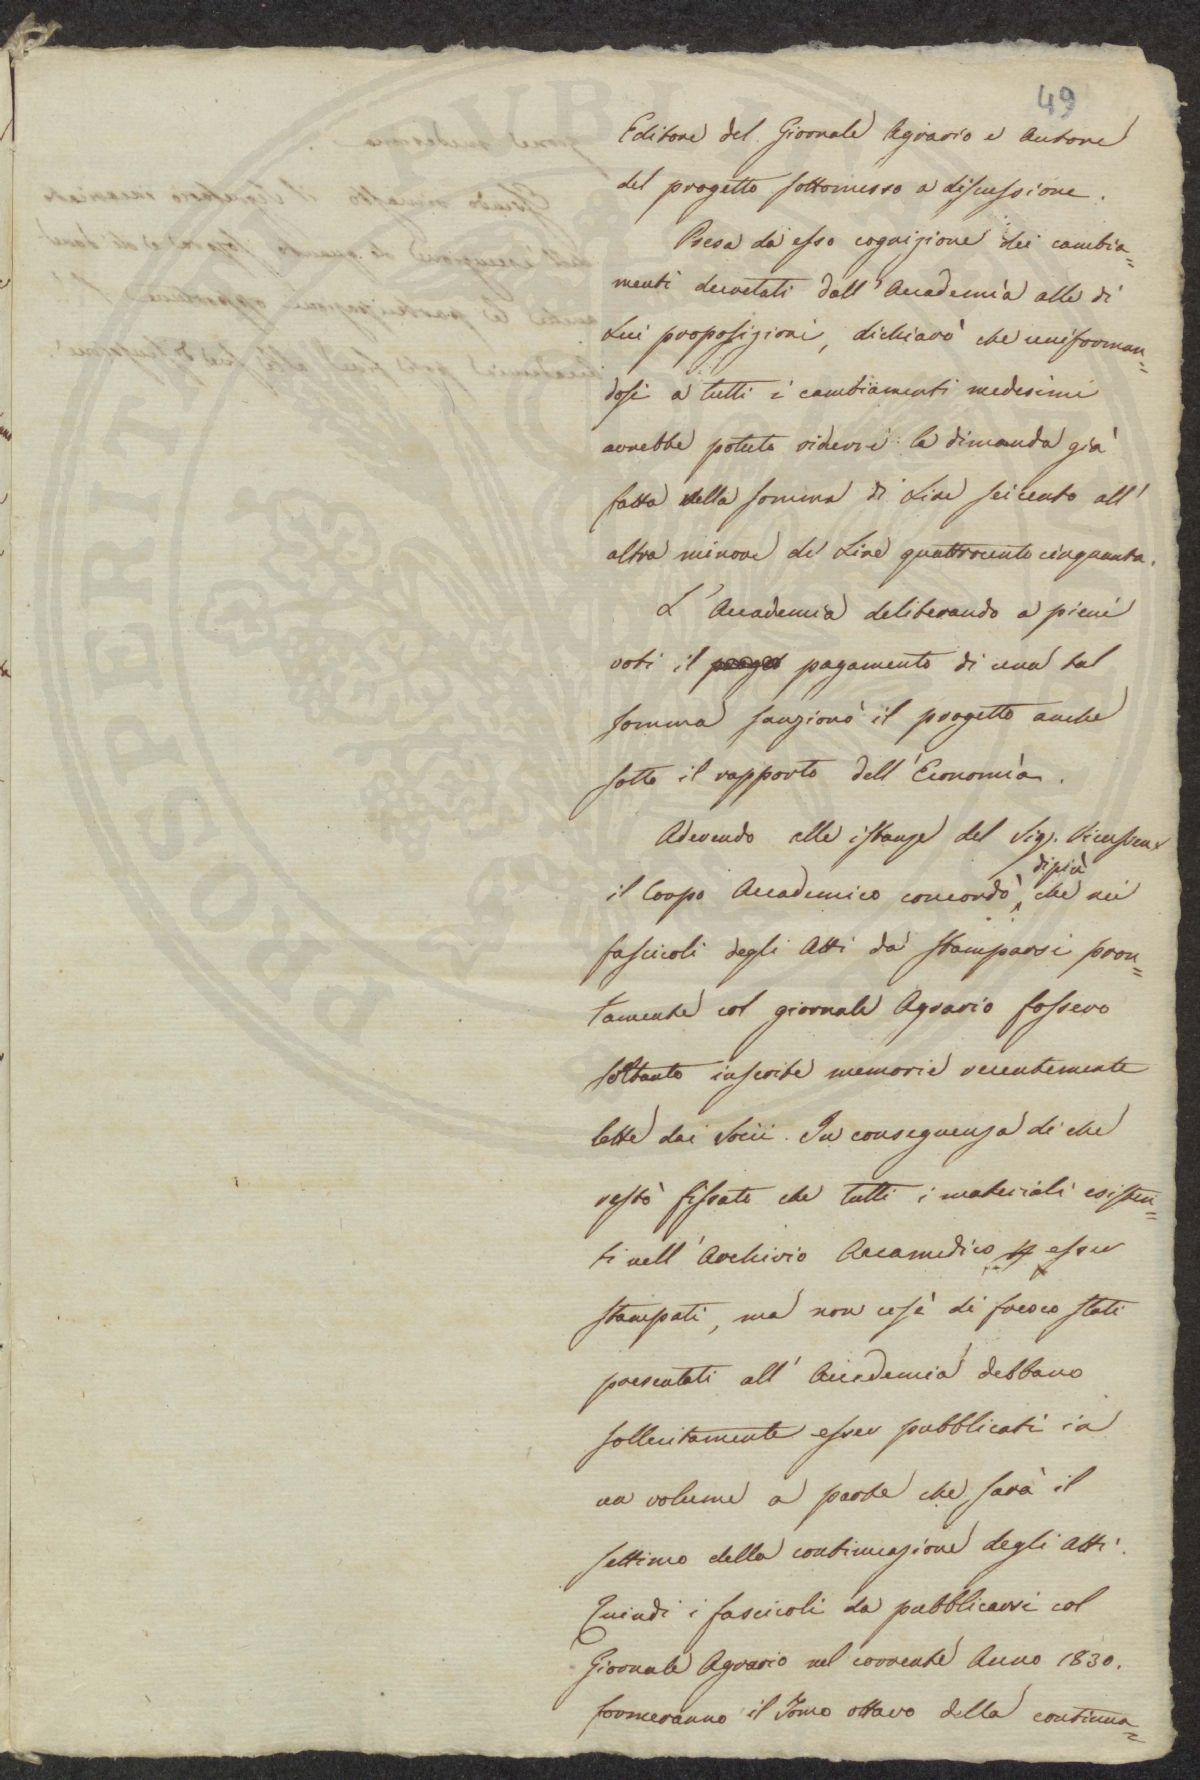 49
Editore del Giornale Agrario e Autore
del progetto sottomesso a discussione.
Presa da esso cognizione dei cambia=
menti decretati dall'Accademia alle di
Lui proposizioni, dichiarò che uniforman=
dosi a tutti i cambiamenti medesimi
avrebbe potuto ridurre la dimanda già
fatta della somma di Lire seicento all'
altra minore di Lire quattrocento cinquanta.
L'Accademia deliberando a pieni
voti il pagamento di una tal
somma sanzionò il progetto anche
sotto il rapporto dell'Economia.
Aderendo alle istanze del Sig.
dipiù
il Corpo Accademico concordò, che nei
fascicoli degli Atti da stamparsi pron=
tamente col giornale Agrario fossero
soltanto inserite memorie recentemente
lette dai Socii. In conseguenza di che
restò fissato che tutti i materiali esisten=
ti nell'Archivio Accamedico esser
stampati, ma non così di fresco stati
presentati all'Accademia debbano
sollecitamente esser pubblicati in
un volume a parte che sarà il
settimo della continuazione degli Atti.
Quindi i fascicoli da pubblicarsi col
Giornale Agrario nel corrente Anno 1830.
formeranno il Tomo ottavo della continua=